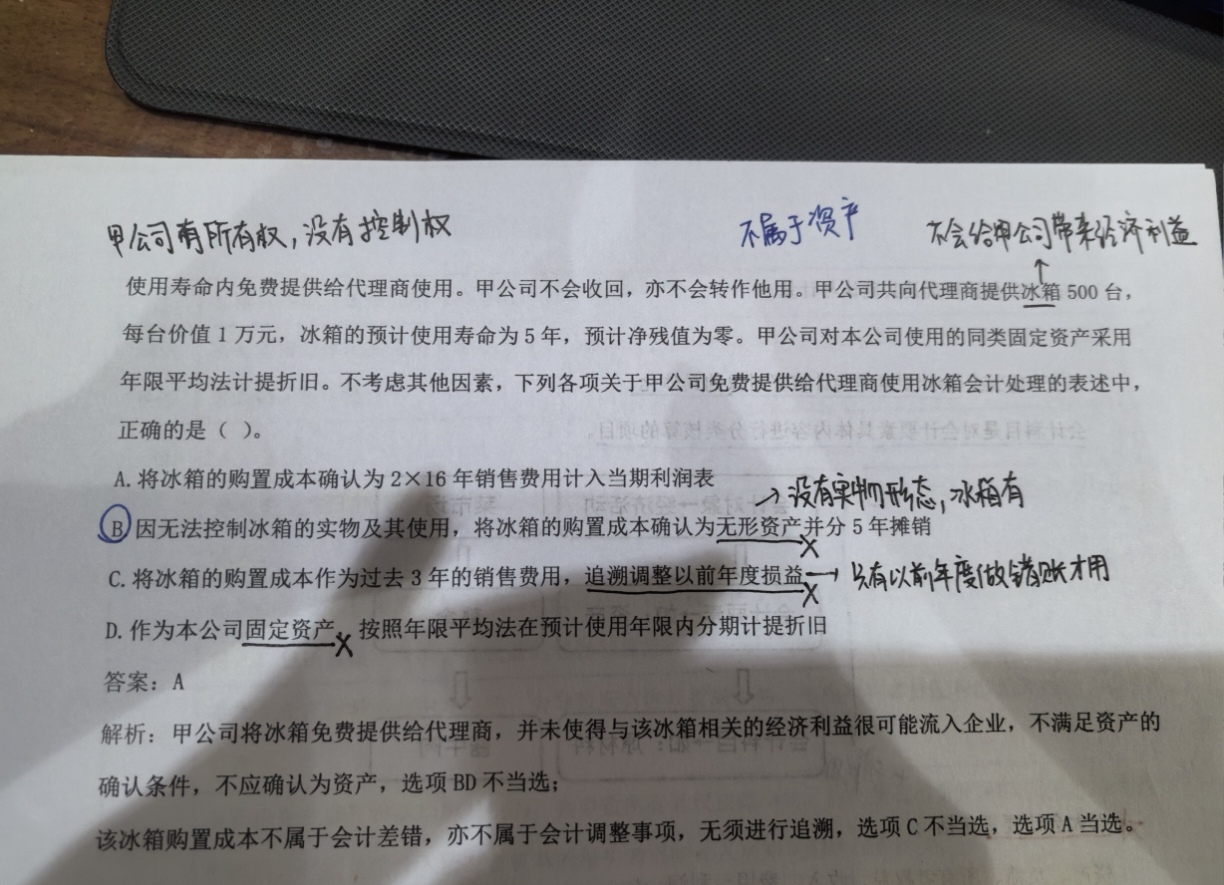 甲公司有所有权，没有控制权 不属于资产 不会给甲公司带来经济利益
使用寿命内免费提供给代理商使用。甲公司不会收回，亦不会转作他用。甲公司共向代理商提供冰箱 500 台，
每台价值 1 万元，冰箱的预计使用寿命为 5 年，预计净残值为零。甲公司对本公司使用的同类固定资产采用
年限平均法计提折旧。不考虑其他因素，下列各项关于甲公司免费提供给代理商使用冰箱会计处理的表述中，
正确的是（ ）。
A. 将冰箱的购置成本确认为 2×16 年销售费用计入当期利润表
→ 没有实物形态，冰箱有
B. 因无法控制冰箱的实物及其使用，将冰箱的购置成本确认为无形资产并分 5 年摊销
C. 将冰箱的购置成本作为过去 3 年的销售费用，追溯调整以前年度损益 → 只有以前年度做错账才用
D. 作为本公司固定资产，按照年限平均法在预计使用年限内分期计提折旧
答案：A
解析：甲公司将冰箱免费提供给代理商，并未使得与该冰箱相关的经济利益很可能流入企业，不满足资产的
确认条件，不应确认为资产，选项 BD 不当选；
该冰箱购置成本不属于会计差错，亦不属于会计调整事项，无须进行追溯，选项 C 不当选，选项 A 当选。
会计科目是对会计要素具体内容进行分类核算的项目。